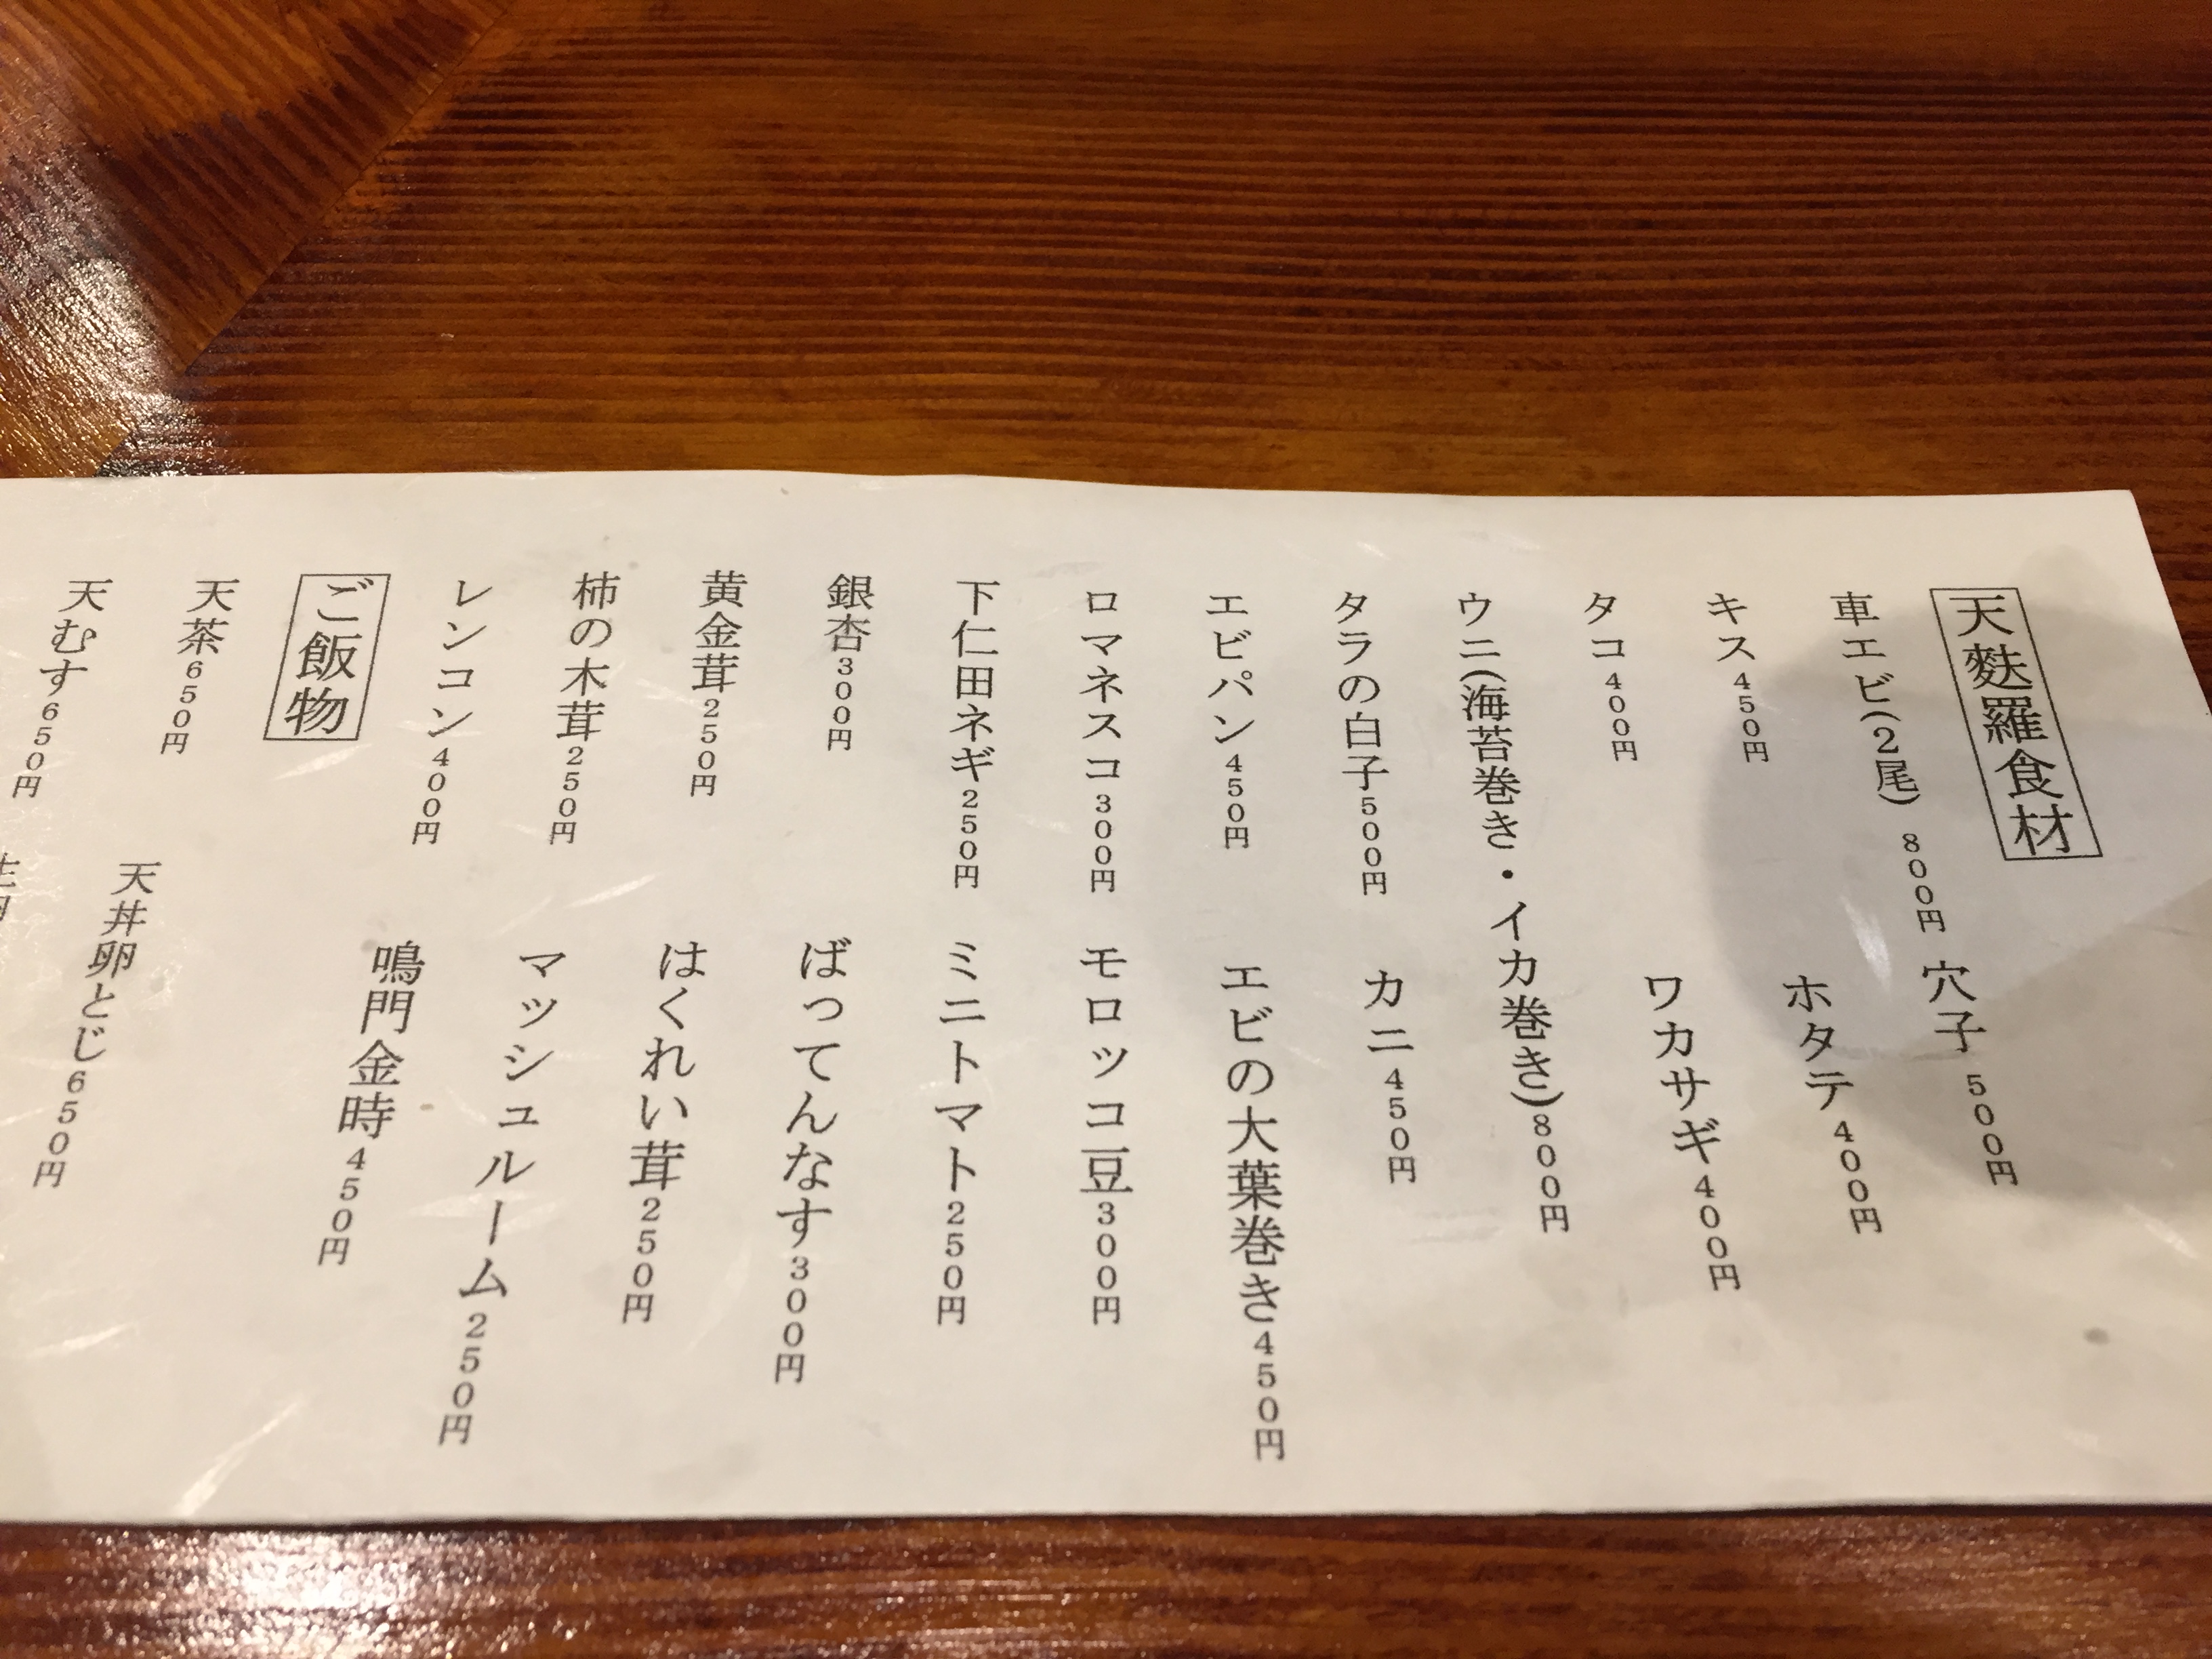 天麩羅食材
車エビ(2尾) 800円 穴子 500円
キス450円 ホタテ400円
タコ400円 ワカサギ400円
ウニ(海苔巻き・イカ巻き)800円
タラの白子500円 カニ450円
エビパン450円 エビの大葉巻き450円
ロマネスコ300円 モロッコ豆300円
下仁田ネギ250円 ミニトマト250円
銀杏300円 ばってんなす300円
黄金茸250円 はくれい茸250円
柿の木茸250円 マッシュルーム250円
レンコン400円 鳴門金時450円
ご飯物
天茶650円 天丼卵とじ650円
天むす650円